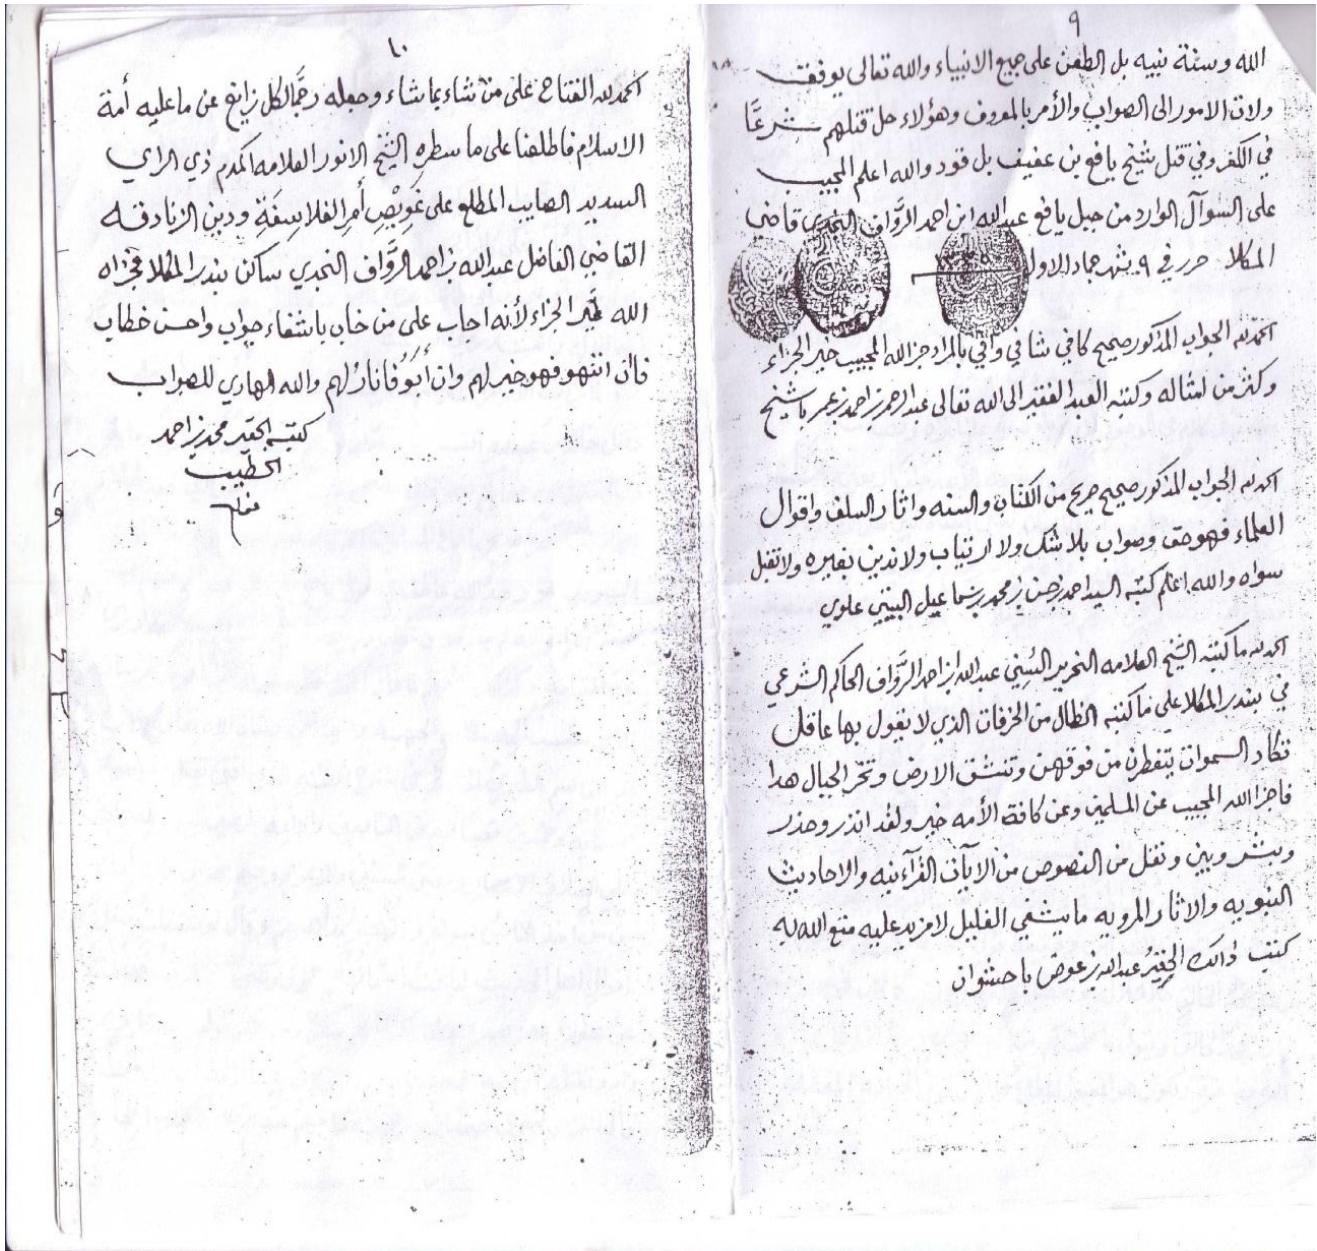 ٩
الله وسنة نبيه بل الطعن على جميع الانبياء والله تعالى يوفق
ولات الامور الى الصواب والأمر بالمعروف وهؤلاء حل قتلهم شرعًا
في الكفر وفي قتل شيخ يافع بن عفيف بل قود والله اعلم المجيب
على السوآل الوارد من جبل يافع عبدالله ابن احمد الروَّاف النجدي قاضي
المكلا حرر في ٩ شهر جماد الاول
الحمد لله الجواب المذكور صحيح كافي شافي وافي بالمراد جزا الله المجيب خير الجزاء
وكثر من امثاله وكتبه العبد الفقير الى الله تعالى عبدالرحمن بن احمد بن عمر باشيخ
الحمد لله الجواب المذكور صحيح صريح من الكتاب والسنه واثار السلف واقوال
العلماء فهو حق وصواب بلا شك ولا ارتياب ولا ندين بغيره ولا نقبل
سواه والله اعلم كتبه السيد احمد بن حسن بن محمد بن سماعيل البيتي علوي
الحمد لله ما كتبه الشيخ العلامه النحرير السُنِني عبدالله ابن احمد الروَّاف الحاكم الشرعي
في بندر المكلا على ما كتبه الظال من الخرفات الذي لا يقول بها عاقل
تكاد السموات يتفطرن من فوقهن وتنشق الارض وتخر الجبال هدا
فاجزا الله المجيب عن المسلمين وعن كافة الأمه خير ولقد انذر وحذر
وبشر وبين ونقل من النصوص من الآيات القرآنيه والاحاديث
النبويه والاثار المرويه ما يشفى الغليل لا مزيد عليه متع الله به
كتب ذالك الحقير عبدالله بن عوض باحشوان
١٠
الحمد لله الفتاح على من شاء بما شاء وجعله رجمًا لكل زايغ عن ما عليه أمة
الاسلام فاطلعنا على ما سطره الشيخ الانور العلامه المكرم ذي الراي
السديد الصايب المطلع على عَوِيْصِ أمرِ الفلاسِفَةِ ودين الزنادقه
القاضي الفاضل عبدالله بن احمد الروَّاف النجدي ساكن بندر المكلا فجزاه
الله خير الجزاء لأنه اجاب على من خاب باشفاء جواب واحسن خطاب
فان انتهو فهو خير لهم وان أبَوْ فالنار لهم والله الهادي للصواب
كتبه الحقير محمد بن احمد
الخطيب